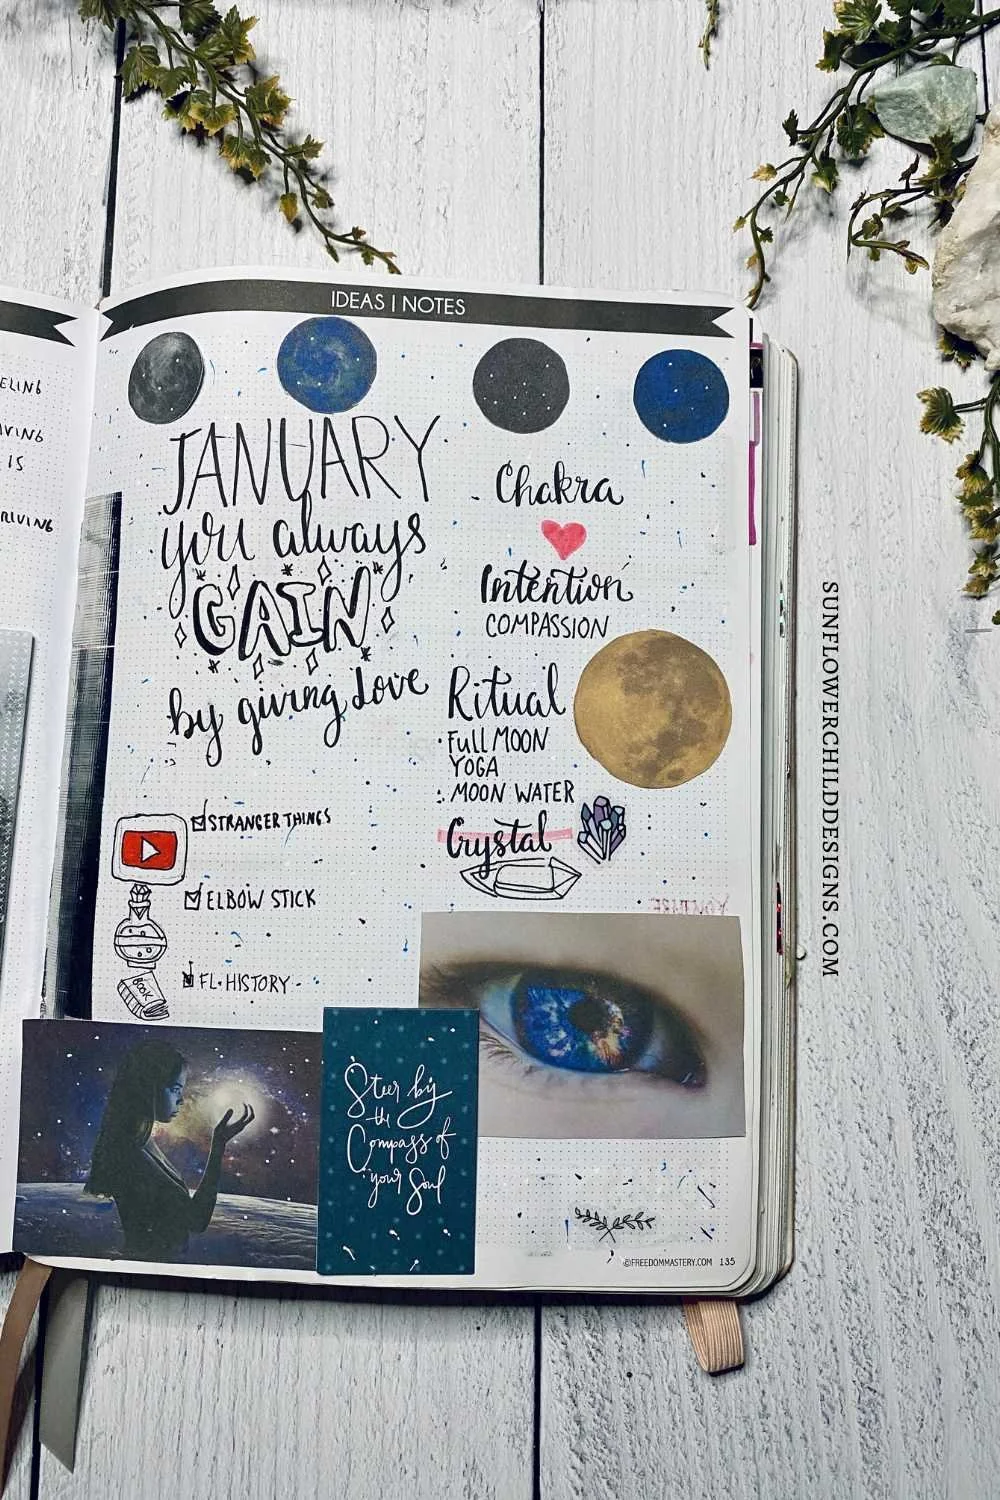 IDEAS | NOTES
ELING
IS
JANUARY
you always
GAIN
by giving Love
Chakra
Intention
COMPASSION
Ritual
FULL MOON
YOGA
MOON WATER
Crystal
STRANGER THINGS
ELBOW STICK
FL. HISTORY
BOOK
Steer by
the
Compass of
your Soul
©FREEDOMMASTERY.COM 135
SUNFLOWERCHILDDESIGNS.COM